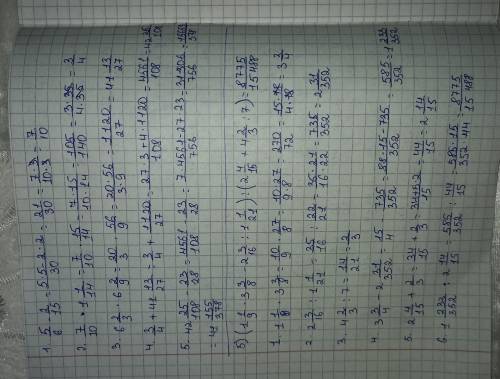 1. 5/6 - 2/15 = (5·5-2·2)/30 = 21/30 = 7·3/10·3 = 7/10
2. 7/10 · 1 1/14 = 7/10 · 15/14 = 7·15/10·14 = 105/140 = 3·35/4·35 = 3/4
3. 6 2/3 · 6 2/9 = 20/3 · 56/9 = 20·56/3·9 = 1120/27 = 41 13/27
4. 3/4 + 41 13/27 = 3/4 + 1120/27 = (27·3+4·1120)/108 = 4561/108 = 42 25/108
5. 42 25/108 - 23/28 = 4561/108 - 23/28 = (7·4561-27·23)/756 = 31306/756 = 15653/378
= 41 155/378
5) (1 1/9 · 3 3/8 - 2 3/16 : 1 1/21) : (2 4/15 + 4 2/3 : 7) = 8775/15488
1. 1 1/9 · 3 3/8 = 10/9 · 27/8 = 10·27/9·8 = 270/72 = 15·18/4·18 = 3 3/4
2. 2 3/16 : 1 1/21 = 35/16 : 22/21 = 35·21/16·22 = 735/352 = 2 31/352
3. 4 2/3 : 7 = 14/21 = 2/3
4. 3 3/4 - 2 31/352 = 15/4 - 735/352 = (88·15-735)/352 = 585/352 = 1 233/352
5. 2 4/15 + 2/3 = 34/15 + 2/3 = (34+5·2)/15 = 44/15 = 2 14/15
6. 1 233/352 : 2 14/15 = 585/352 : 44/15 = 585·15/352·44 = 8775/15488